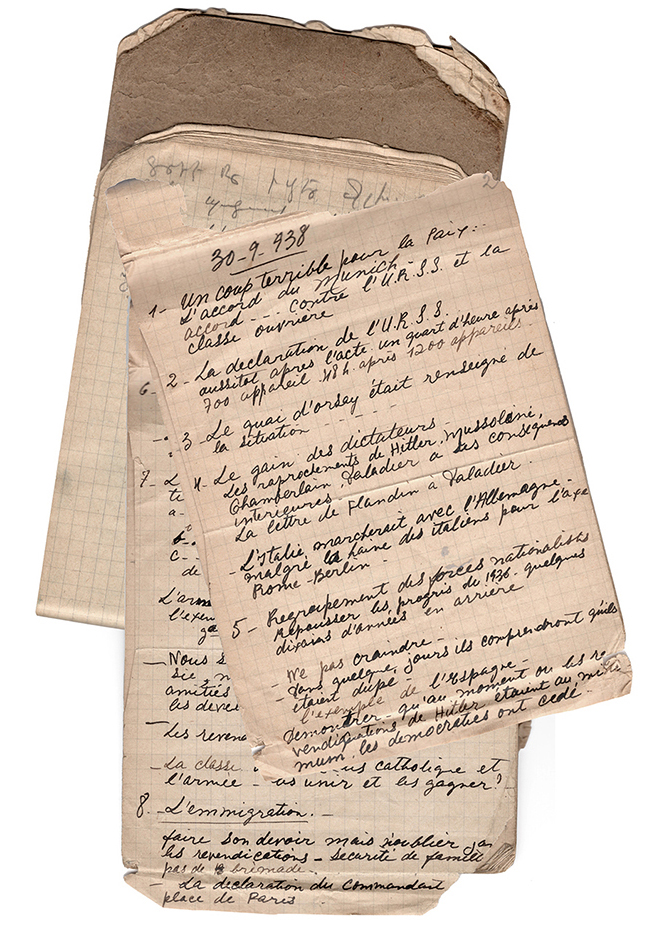 2
30-9-938
1- Un coup terrible pour la Paix:-
L'accord du Munich-
accord --- contre l'U.R.S.S. et la
classe ouvrière
2- La declaration de l'U.R.S.S.
aussitot après l'acte un quart d'heure après
700 appareil 48 h. après 1200 appareils-
3- Le quai d'orsay était renseigné de
la situation -----
4- Le gain des dictateurs
Les raprochements de Hitler, Mussoleine,
Chamberlain, Daladier a ses consequences
interieures
La lettre de Flandin a Daladier.
- L'Italie, marcherait avec l'Allemagne-
malgré la haine des italiens pour l'axe
Rome-Berlin-
5- Regroupement des forces nationalistes
Repousser les progris de 1936- quelques
dixains d'années en arriere
- Ne pas craindre-
- dans quelque jours ils comprendront qu'ils
étaient dupé-
l'exemple de l'Espagne-
demontrer- qu'au moment ou les re
vendiquations de Hitler étaient au mini
mum, les democraties ont cedé.
6-
7- L
a-
b-
c--
de
L'arm
l'exem
- Nous s
sie, n
amitiés
les devei
- Les revend
- La classe us catholique et
l'armée- les unir et les gagner?
8. L'emmigration.-
faire son devoir mais n'oublier jan
les revendications- securite de famill
pas de brimade.
- La declaration du commandant
place de Paris